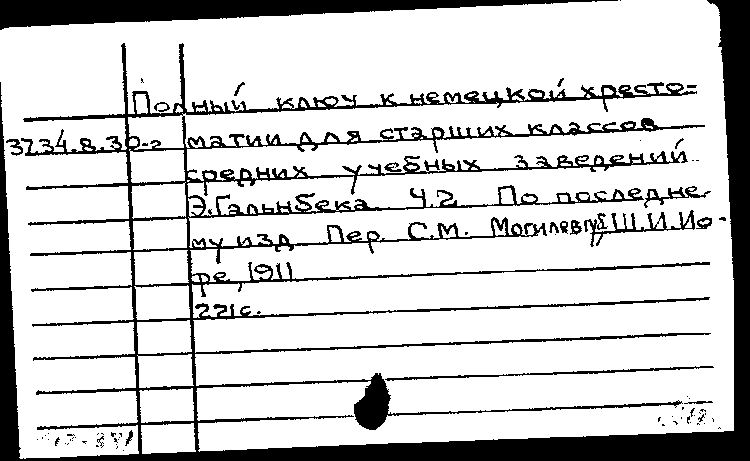 Полный ключ к немецкой хресто=
3734.8.30-2 матии для старших классов
средних учебных заведений
Э.Гальнбека Ч.2 По последне-
му изд Пер. С.М. Могилев, Ш.И.Ио-
фе, 1911
221с.